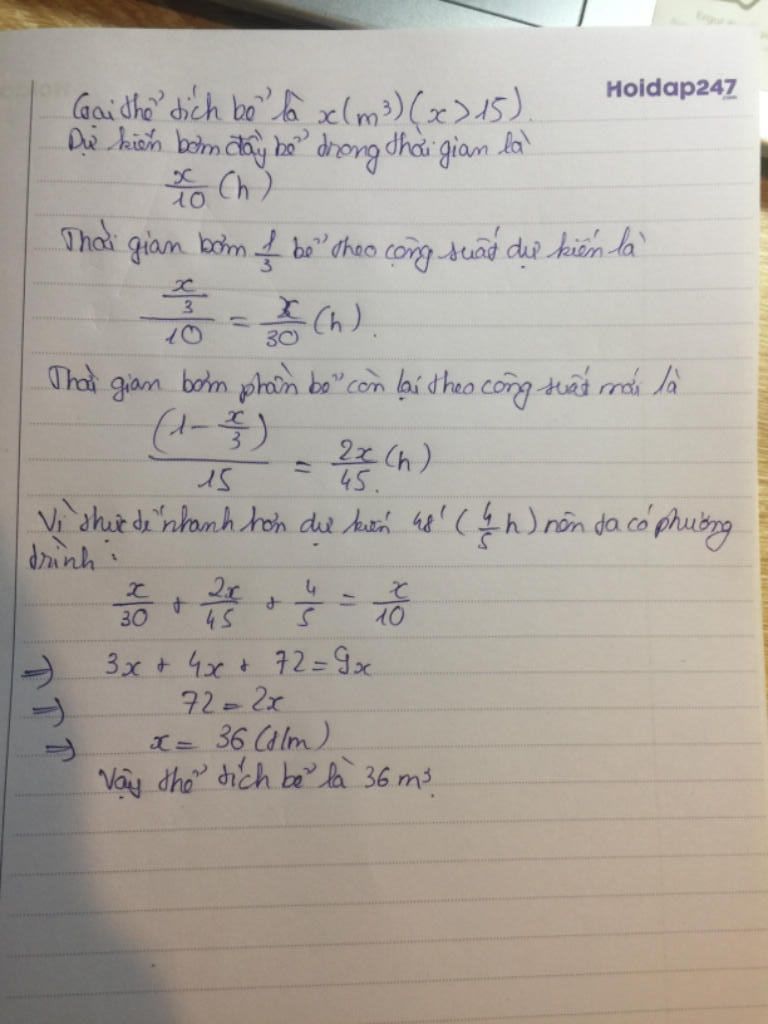 Hoidap247
.com
Gọi thể tích bể là x(m³)(x>15).
Dự kiến bơm đầy bể trong thời gian là
x/10 (h)
Thời gian bơm 1/3 bể theo công suất dự kiến là
(x/3)/10 = x/30 (h).
Thời gian bơm phần bể còn lại theo công suất mới là
(1 - x/3)/15 = 2x/45 (h)
Vì thực tế nhanh hơn dự kiến 48' (4/5 h) nên ta có phương
trình:
x/30 + 2x/45 + 4/5 = x/10
=> 3x + 4x + 72 = 9x
=> 72 = 2x
=> x = 36 (t/m)
Vậy thể tích bể là 36 m³.